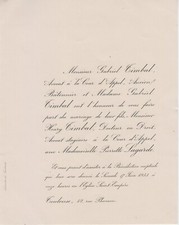 Monsieur Gabriel Timbal,
Avocat à la Cour d'Appel, Ancien
Bâtonnier et Madame Gabriel
Timbal ont l'honneur de vous faire
part du mariage de leur fils, Monsieur
Henry Timbal, Docteur en Droit,
Avocat stagiaire à la Cour d'Appel,
avec Mademoiselle Lagarde.
Et vous prient d'assister à la Bénédiction nuptiale
qui leur sera donnée le Samedi Juin
onze heures en l'Eglise Saint
Toulouse, rue